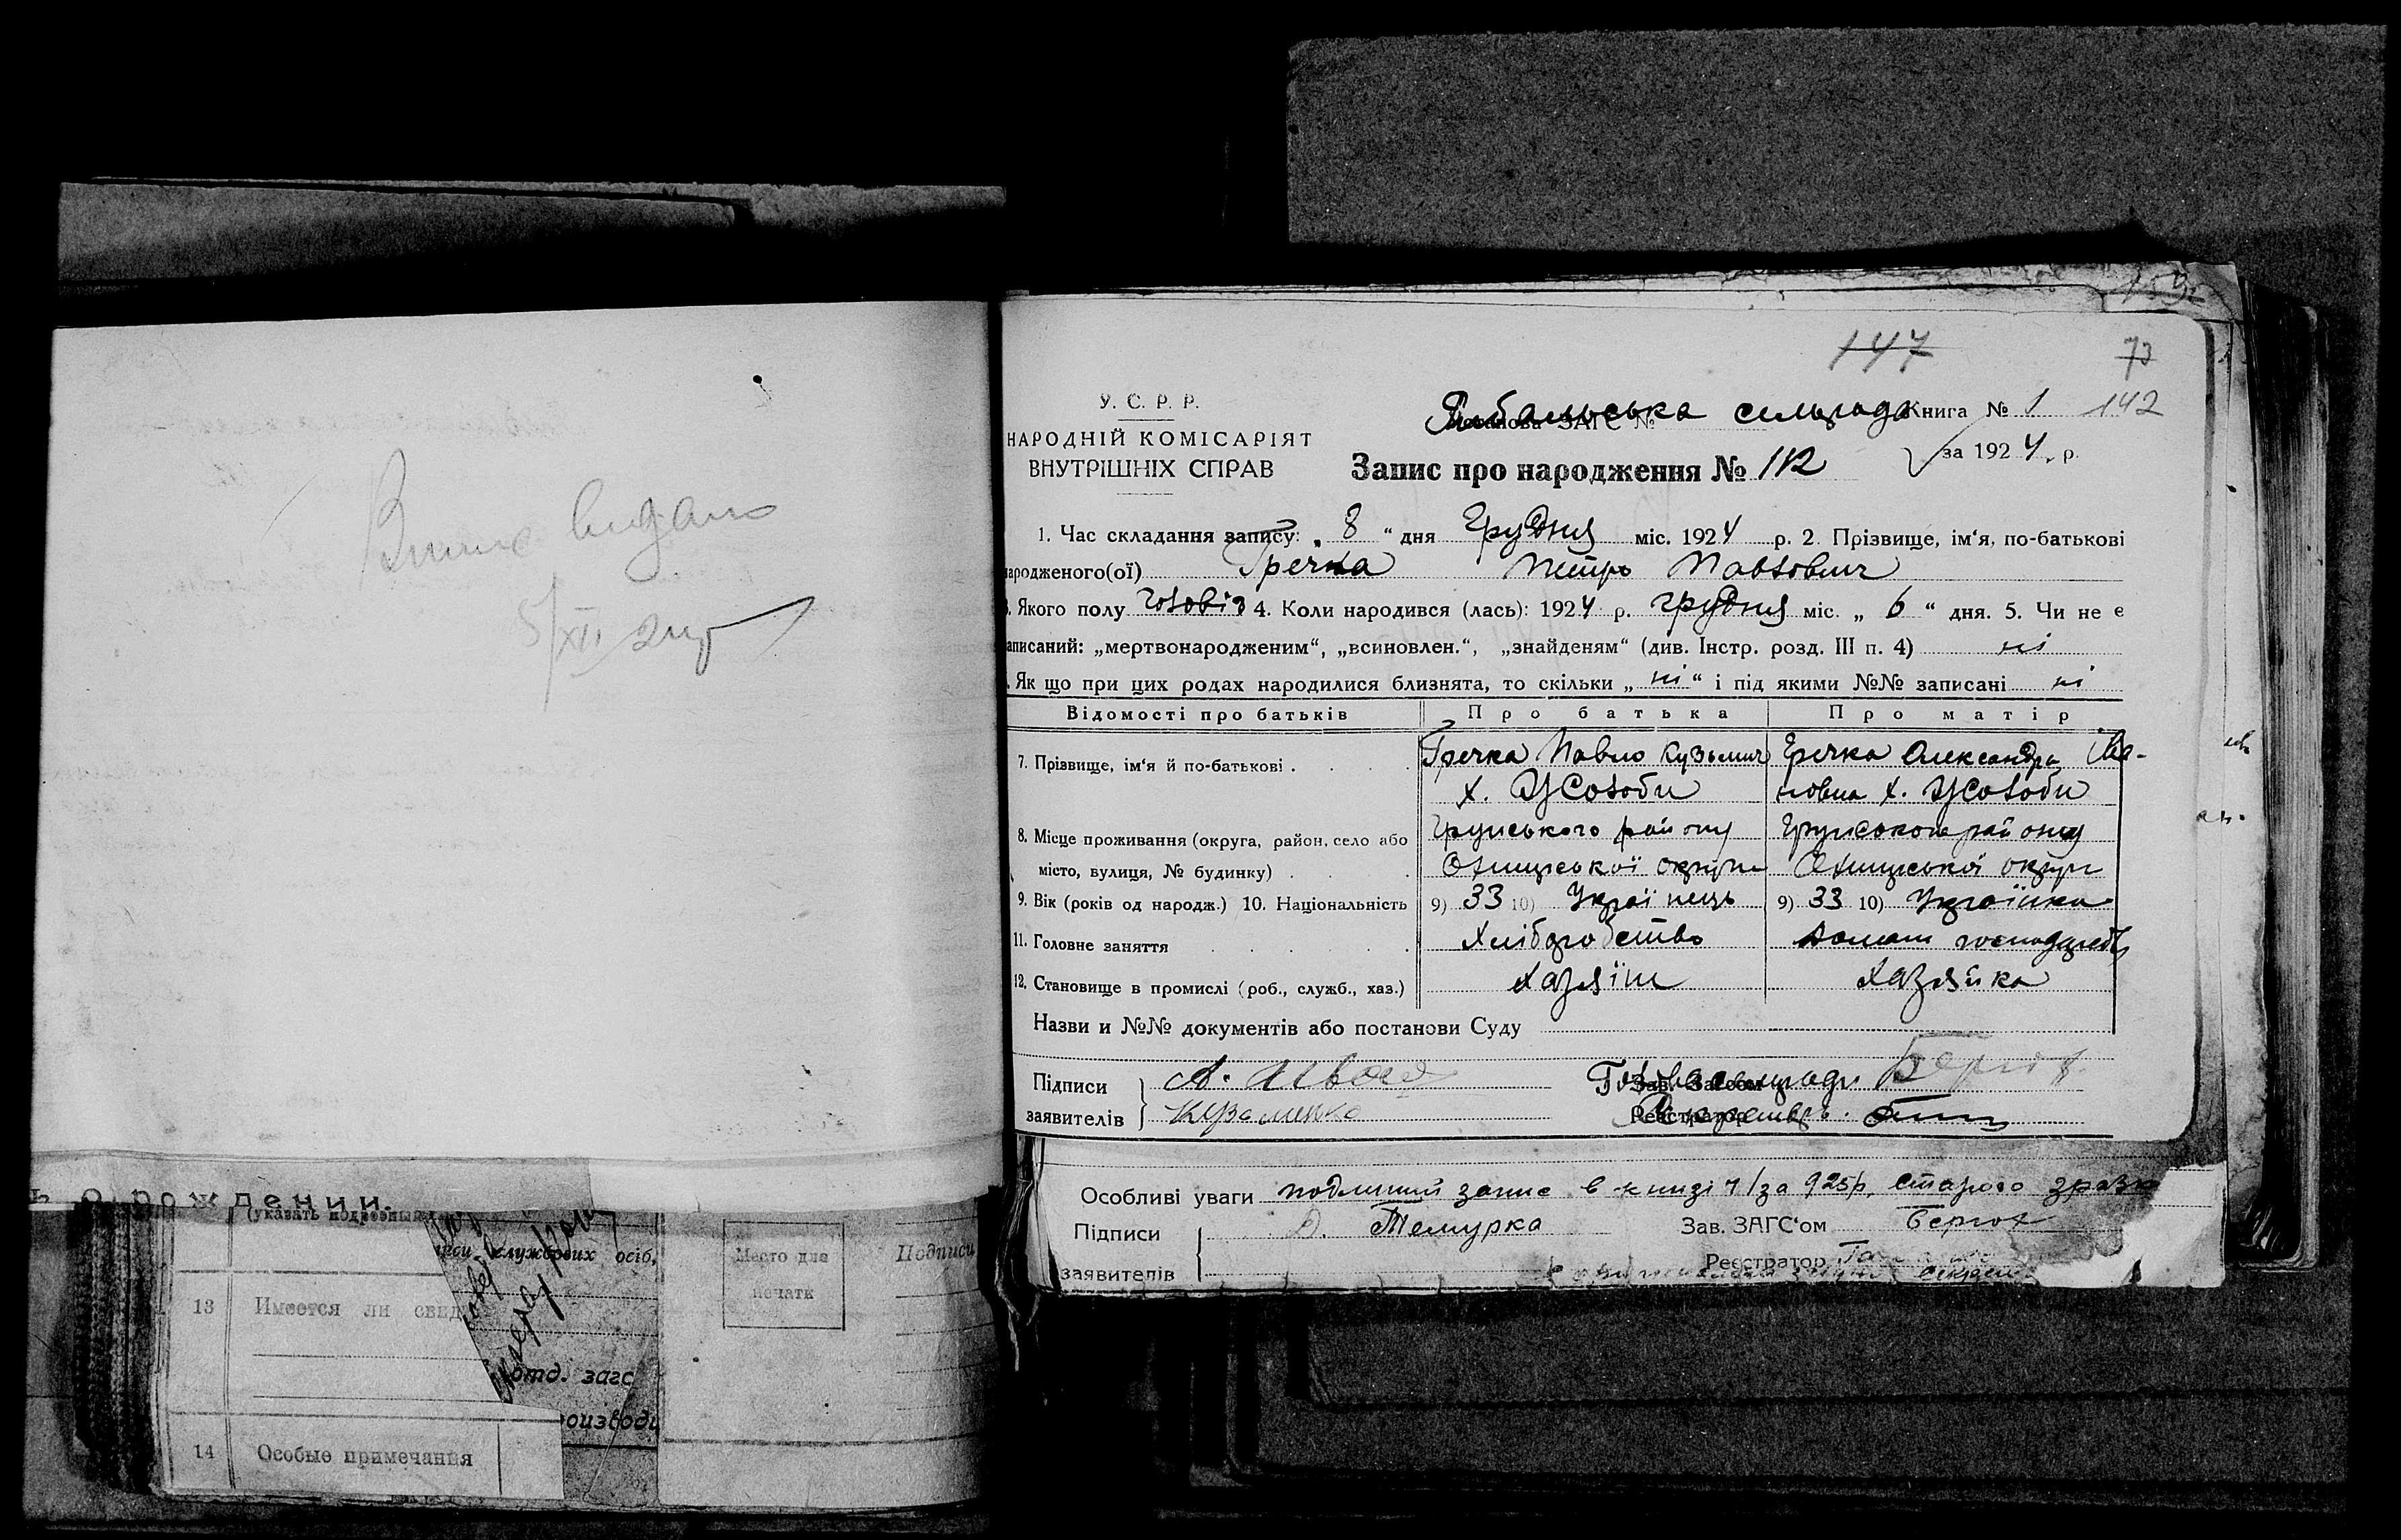 147
73
У. С. Р. Р.
НАРОДНІЙ КОМІСАРІЯТ
ВНУТРІШНІХ СПРАВ
Рибальська сельрада Книга № 1 142
за 1924 р.
Запис про народження № 112
1. Час складання запису: „ 8 “ дня Грудня міс. 1924 р. 2. Прізвище, ім‘я, по-батькові
народженого(ої) Гречка Петро Павлович
3. Якого полу чоловіч 4. Коли народився (лась): 1924 р. грудня міс. „ 6 “ дня. 5. Чи не є
записаний: „мертвонародженим“, „всиновлен.“, „знайденям“ (див. Інстр. розд. III п. 4) ні
Як що при цих родах народилися близнята, то скільки „ ні “ і під якими №№ записані ні
Відомості про батьків Про батька Про матір
7. Прізвище, ім‘я й по-батькові . Гречка Павло Кузьмич Гречка Александра Іва-
х. Усолоби новна х. Усолоби
8. Місце проживання (округа, район, село або Грунського району Грунського району
місто, вулиця, № будинку) . . Охтирської округи Охтирської округи
9. Вік (років од народж.) 10. Національність 9) 33 10) Українець 9) 33 10) Українка
11. Головне заняття Хліборобство домаш господарств
12. Становище в промислі (роб., служб., хаз.) хазяїн хазяйка
Назви и №№ документів або постанови Суду
Підписи
заявителів Кузоменко
Зав. Загсом
Реєстратор
Особливі уваги подлиний запис в книзі 1 /за 925р. старого зразк
Підписи Темурка Зав. ЗАГС‘ом
Реєстратор
заявителів
Випис видано
5/XII
ь о рождении.
(указать подробный
службових осіб,
Место для
печати
Подписи
13 Имеется ли свид
отд. загс
производ
14 Особые примечания